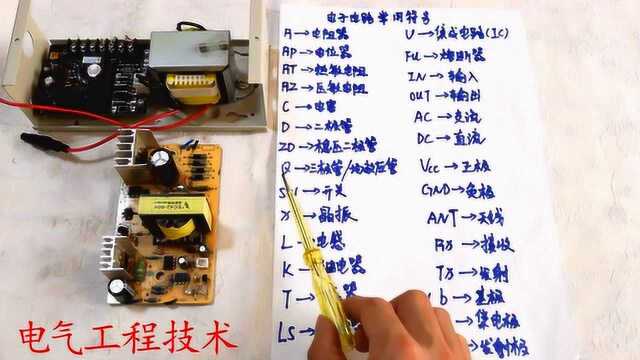 电子电路常用符号
R→电阻器
RP→电位器
RT→热敏电阻
RZ→压敏电阻
C→电容
D→二极管
ZD→稳压二极管
Q→三极管/场效应管
S →开关
X→晶振
L→电感
K→ 电器
T→ 器
LS→
U→集成电路(IC)
FU→熔断器
IN→输入
OUT→输出
AC→交流
DC→直流
Vcc→正极
GND→负极
ANT→天线
RX→接收
TX→发射
b→基极
→集电极
→发射极
电气工程技术